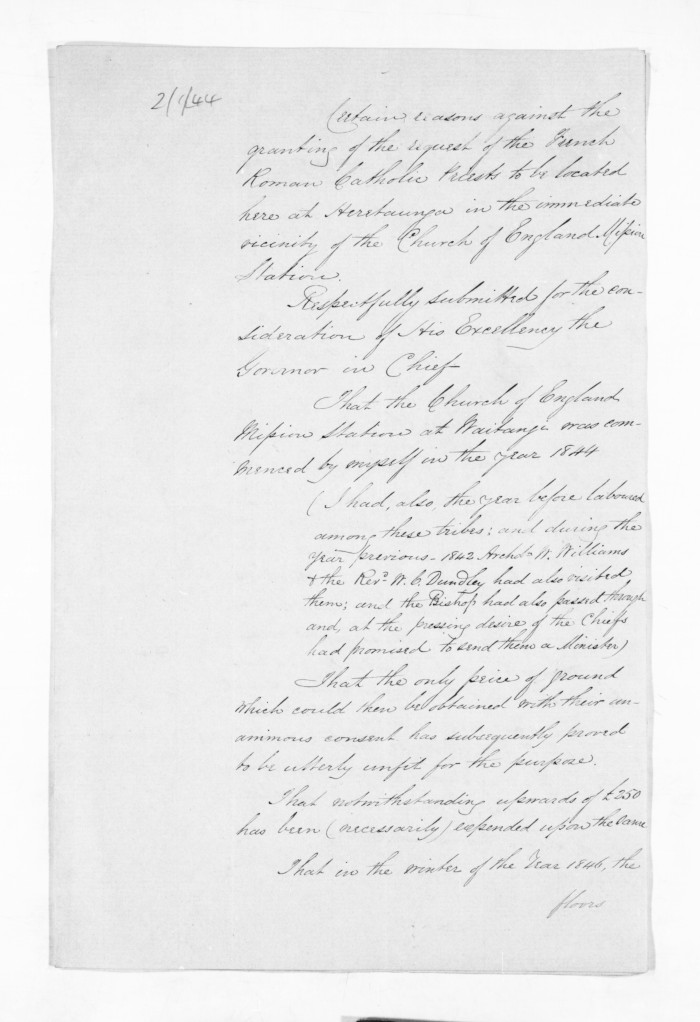 2/1/44
Certain reasons against the
granting of the request of the French
Roman Catholic Priests to be located
here at Heretaunga in the immediate
vicinity of the Church of England Mission
Station.
Respectfully submitted for the con-
sideration of His Excellency the
Governor in Chief
That the Church of England
Mission Station at Waitangi was com-
menced by myself in the year 1844
(I had, also, the year before laboured
among these tribes; and during the
year previous - 1842 Archdn W. Williams
& the Revd. W. C. Dundley had also visited
them; and the Bishop had also passed through
and, at the pressing desire of the Chiefs
had promised to send them a Minister)
That the only peice of ground
which could then be obtained with their un-
animous consent has subsequently proved
to be utterly unfit for the purpose.
That notwithstanding upwards of £250
has been (necessarily) expended upon the same
That in the winter of the Year 1846, the
floors